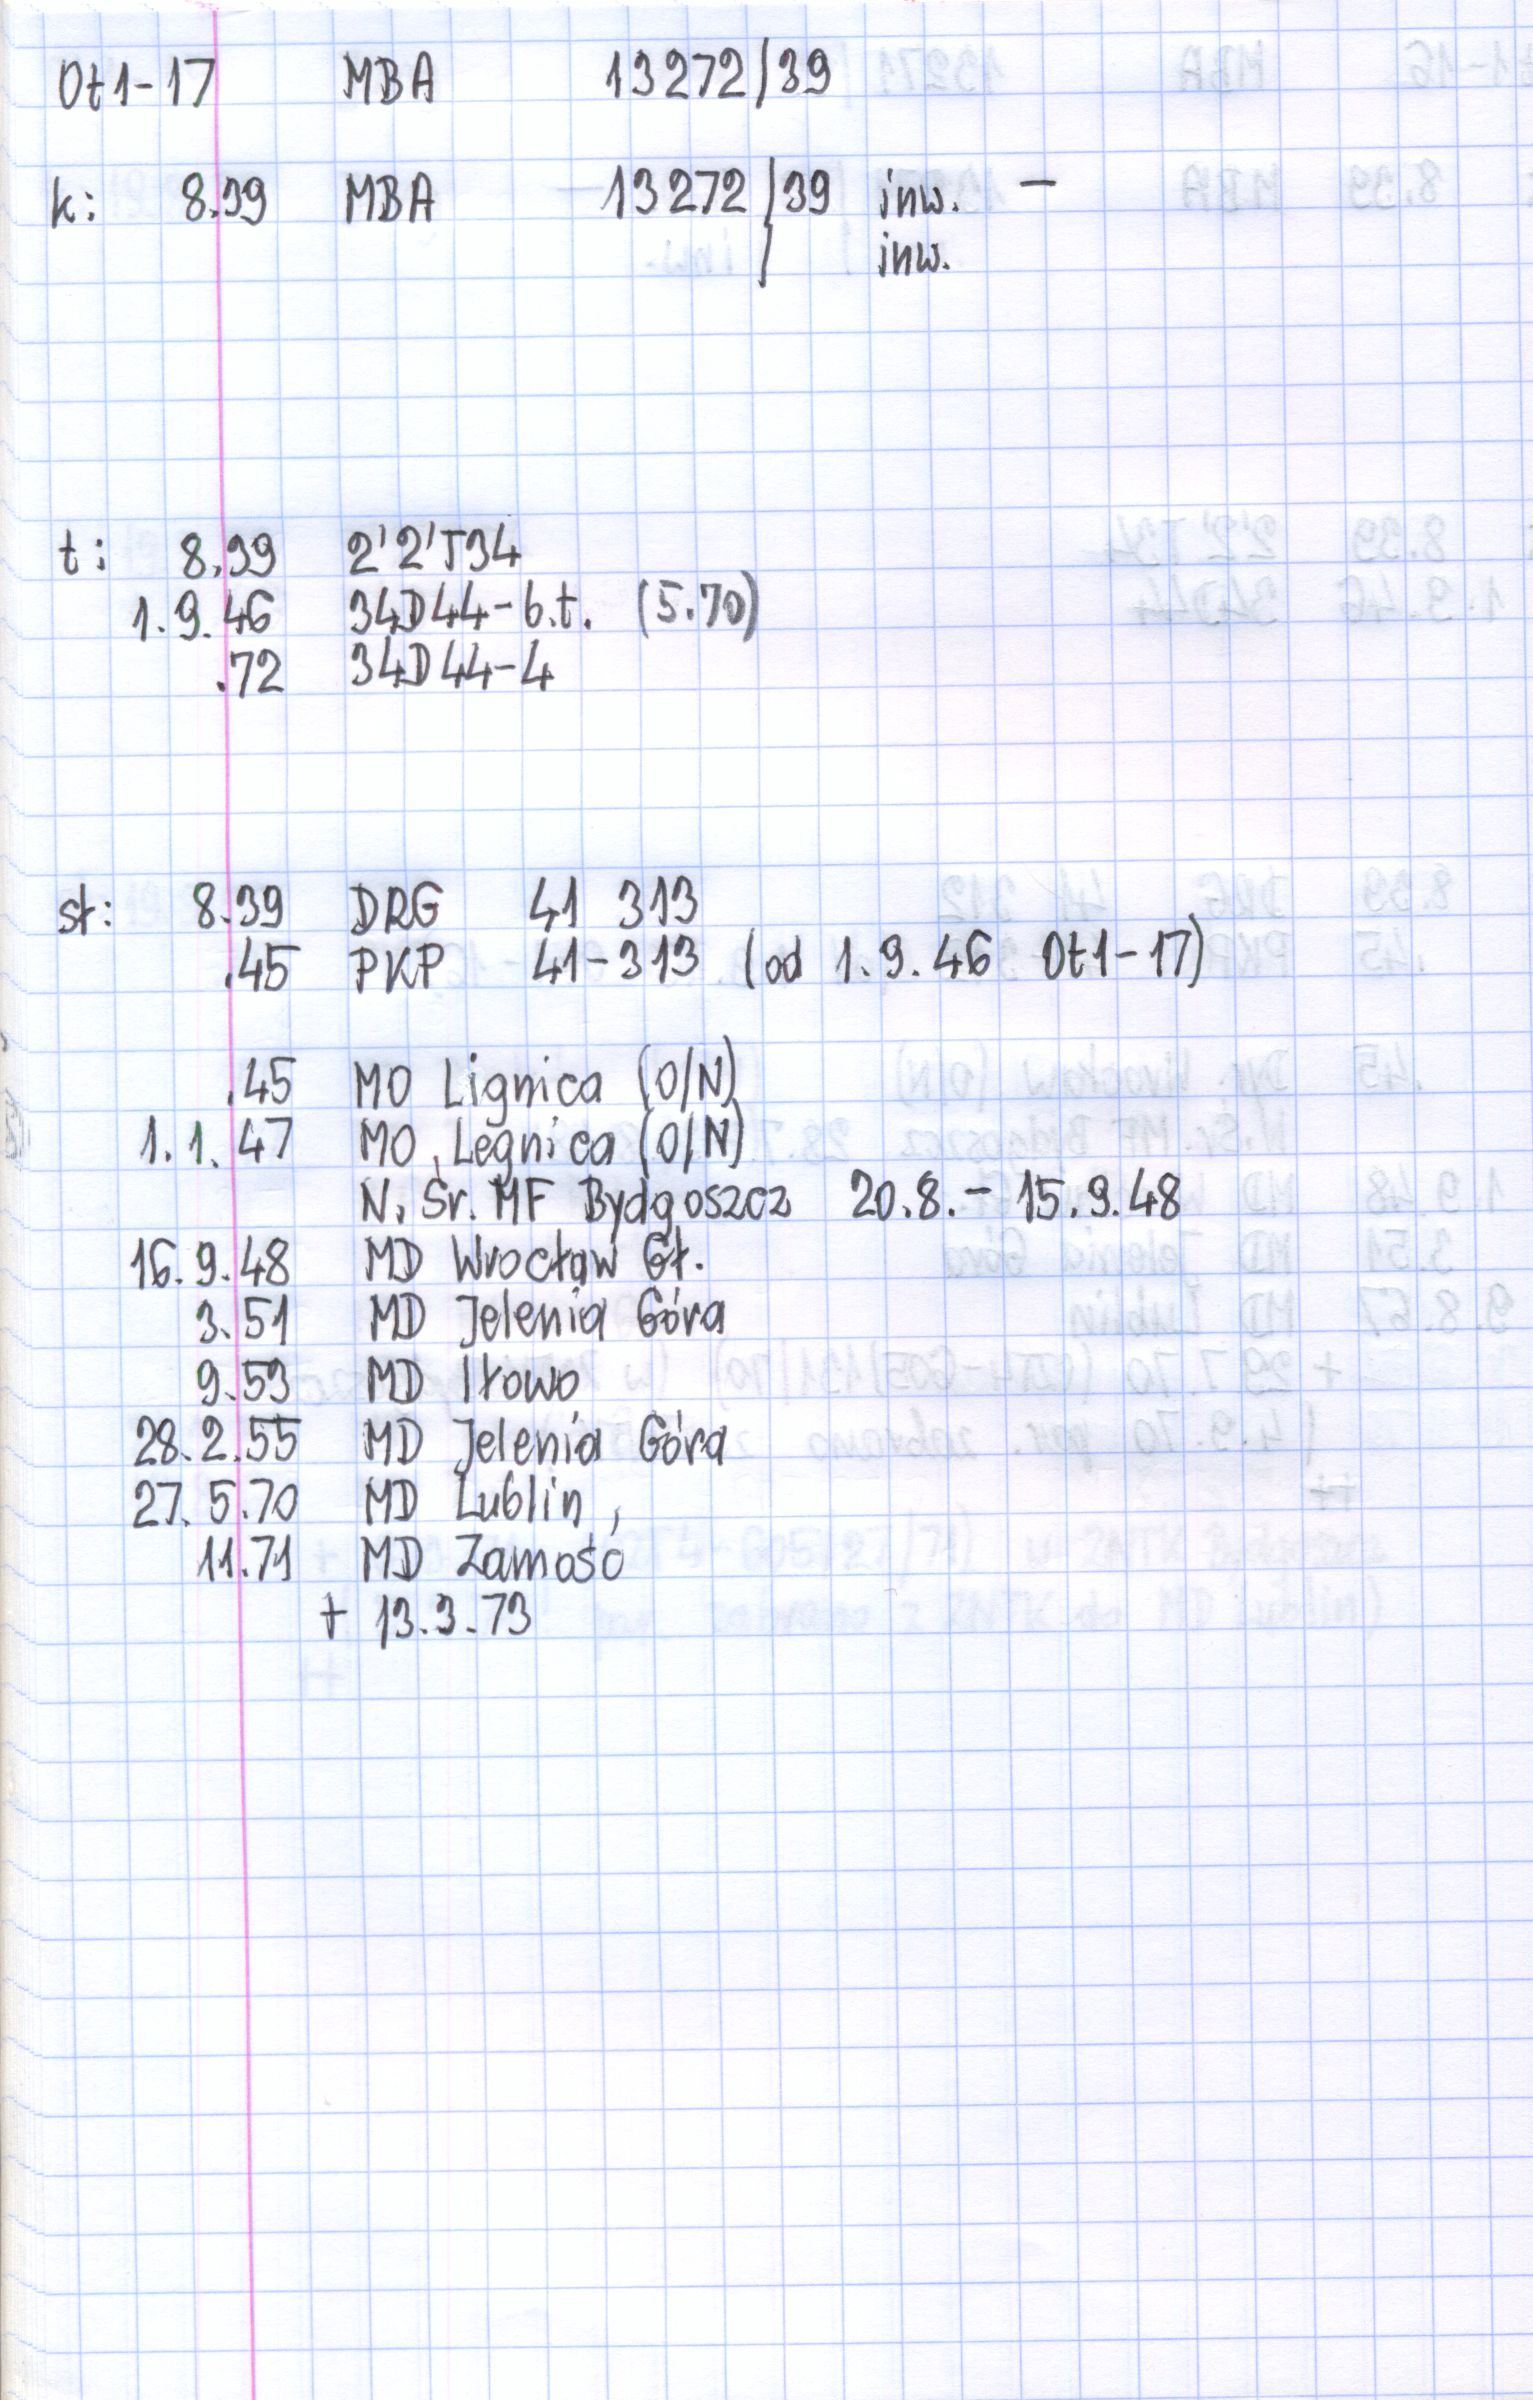 Ot1-17 MBA 13272/39
k: 8.39 MBA 13272/39 inw. –
/ inw.
t: 8.39 2'2'T34
1.9.46 34D44-b.t. (5.70)
.72 34D44-4
st: 8.39 DRG 41 313
.45 PKP 41-313 (od 1.9.46 Ot1-17)
.45 MO Lignica (O/N)
1.1.47 MO Legnica (O/N)
N. Śr. MF Bydgoszcz 20.8.- 15.9.48
16.9.48 MD Wrocław Gł.
3.51 MD Jelenia Góra
9.53 MD Iłowo
28.2.55 MD Jelenia Góra
27.5.70 MD Lublin
11.71 MD Zamość
+ 13.3.73